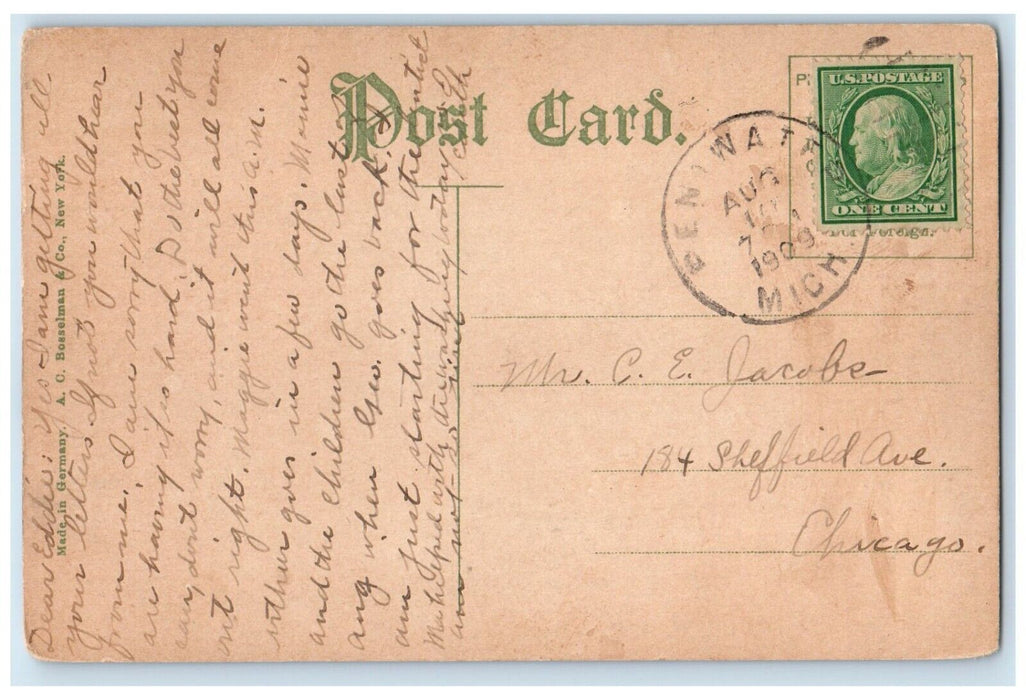 Post Card.
U.S. POSTAGE
ONE CENT
For Foreign.
PENTWATER
AUG
10
1909
MICH
Mr. C. E. Jacobs
184 Sheffield Ave.
Chicago.
Made in Germany. A. C. Bosselman & Co., New York.
Dear Eddie: Yes I am getting all
your letters If not you would hear
from me. I am sorry that you
are having it so hard, Do the best you
can, don't worry, and it will all come
out right. Maggie went this a.m.
Esther goes in a few days. Mamie
and the children go the last of
Aug when Geo. goes back. I
am just starting for the
Ma helped with the washing today